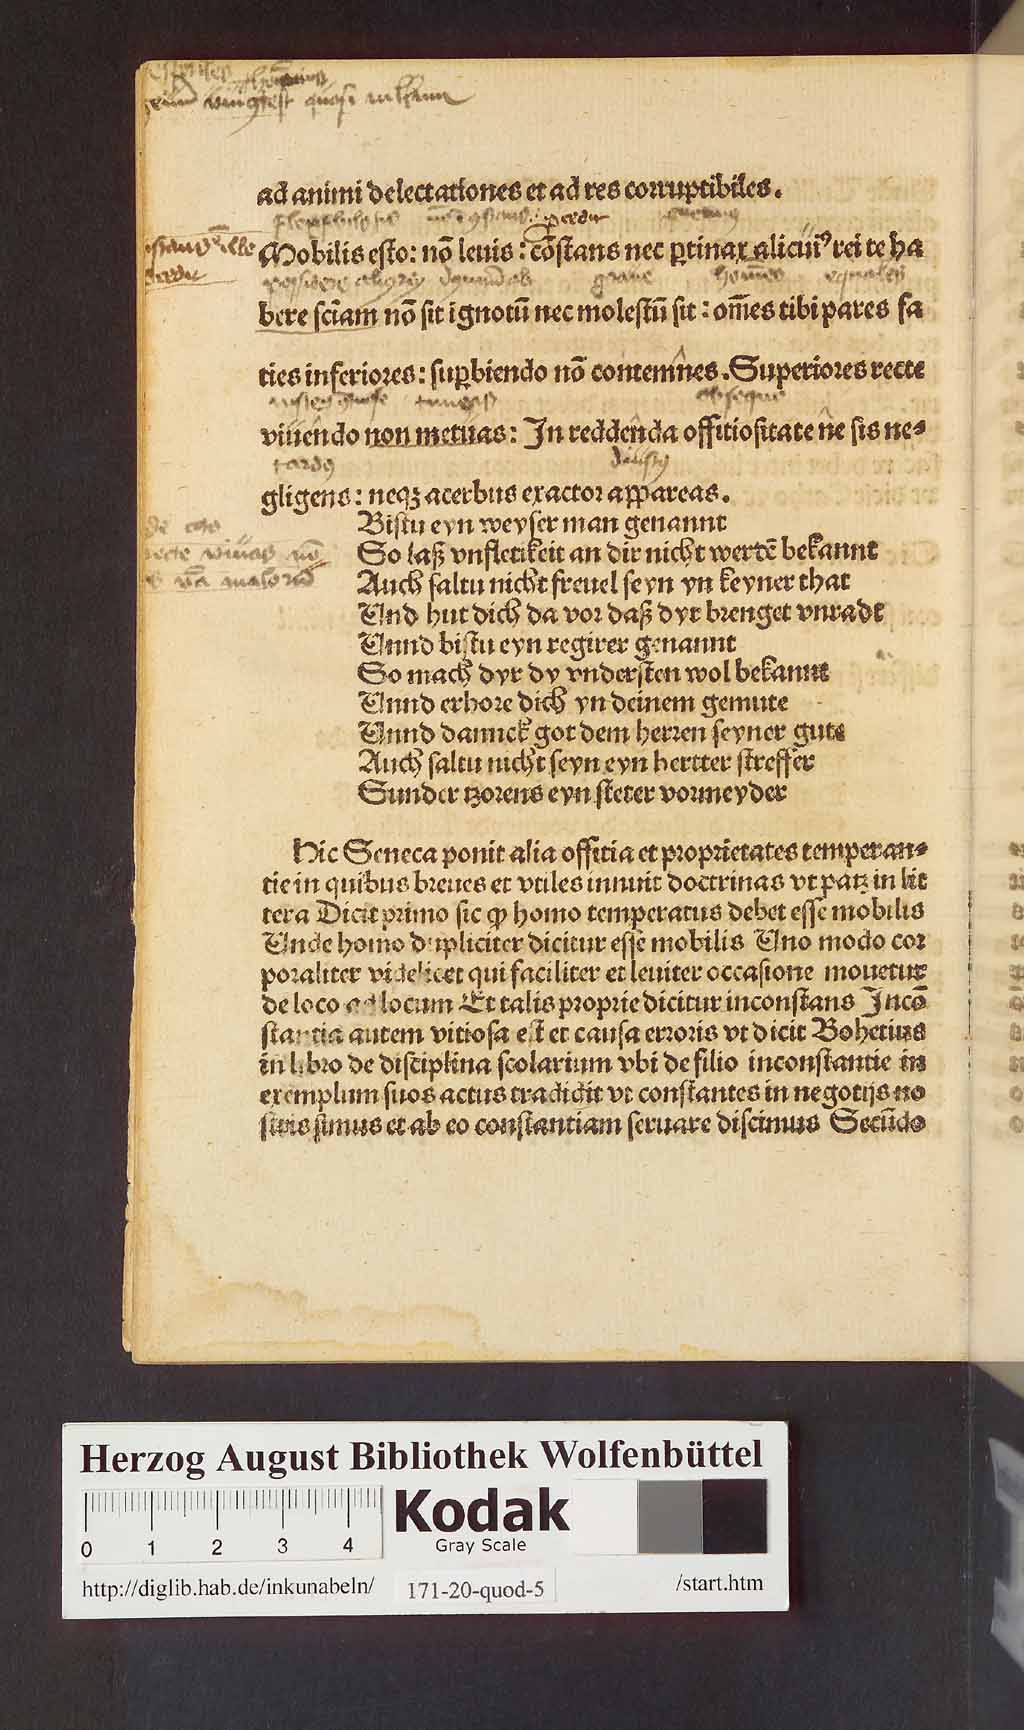 quasi
ad animi delectationes et ad res corruptibiles.
Mobilis esto: nō leuis: cōstans nec ꝑtinax alicuiꝰ rei te ha
bere sciam nō sit ignotū nec molestū sit: om̄es tibi pares fa
ties inferiores: suꝑbiendo nō contemnes. Superiores recte
viuendo non metuas: In reddenda offitiositate ne sis ne⸗
gligens: neqꝫ acerbus exactor appareas.
Bistu eyn weyser man genannt
So laß vnfletikeit an dir nicht wertē bekannt
Auch saltu nicht freuel seyn yn keyner that
Und hut dich da vor daß dyr brenget vnradt
Unnd bistu eyn regirer genannt
So mach dyr dy vndersten wol bekannt
Unnd erhore dich yn deinem gemute
Unnd dannck got dem herren seyner gute
Auch saltu nicht seyn eyn hertter streffer
Sunder tzorens eyn steter vormeyder
Hic Seneca ponit alia offitia et proprietates temperan⸗
tie in quibus breues et vtiles innuit doctrinas vt patꝫ in lit
tera Dicit primo sic ꝙ homo temperatus debet esse mobilis
Unde homo dupliciter dicitur esse mobilis Uno modo cor
poraliter videlicet qui faciliter et leuiter occasione mouetur
de loco ad locum Et talis proprie dicitur inconstans Incō
stantia autem vitiosa est et causa erroris vt dicit Bohetius
in libro de disciplina scolarium vbi de filio inconstantie in
exemplum suos actus tradidit vt constantes in negotijs no
stris simus et ab eo constantiam seruare discimus Secūdo
Herzog August Bibliothek Wolfenbüttel
0 1 2 3 4
Kodak
Gray Scale
http://diglib.hab.de/inkunabeln/ 171-20-quod-5 /start.htm